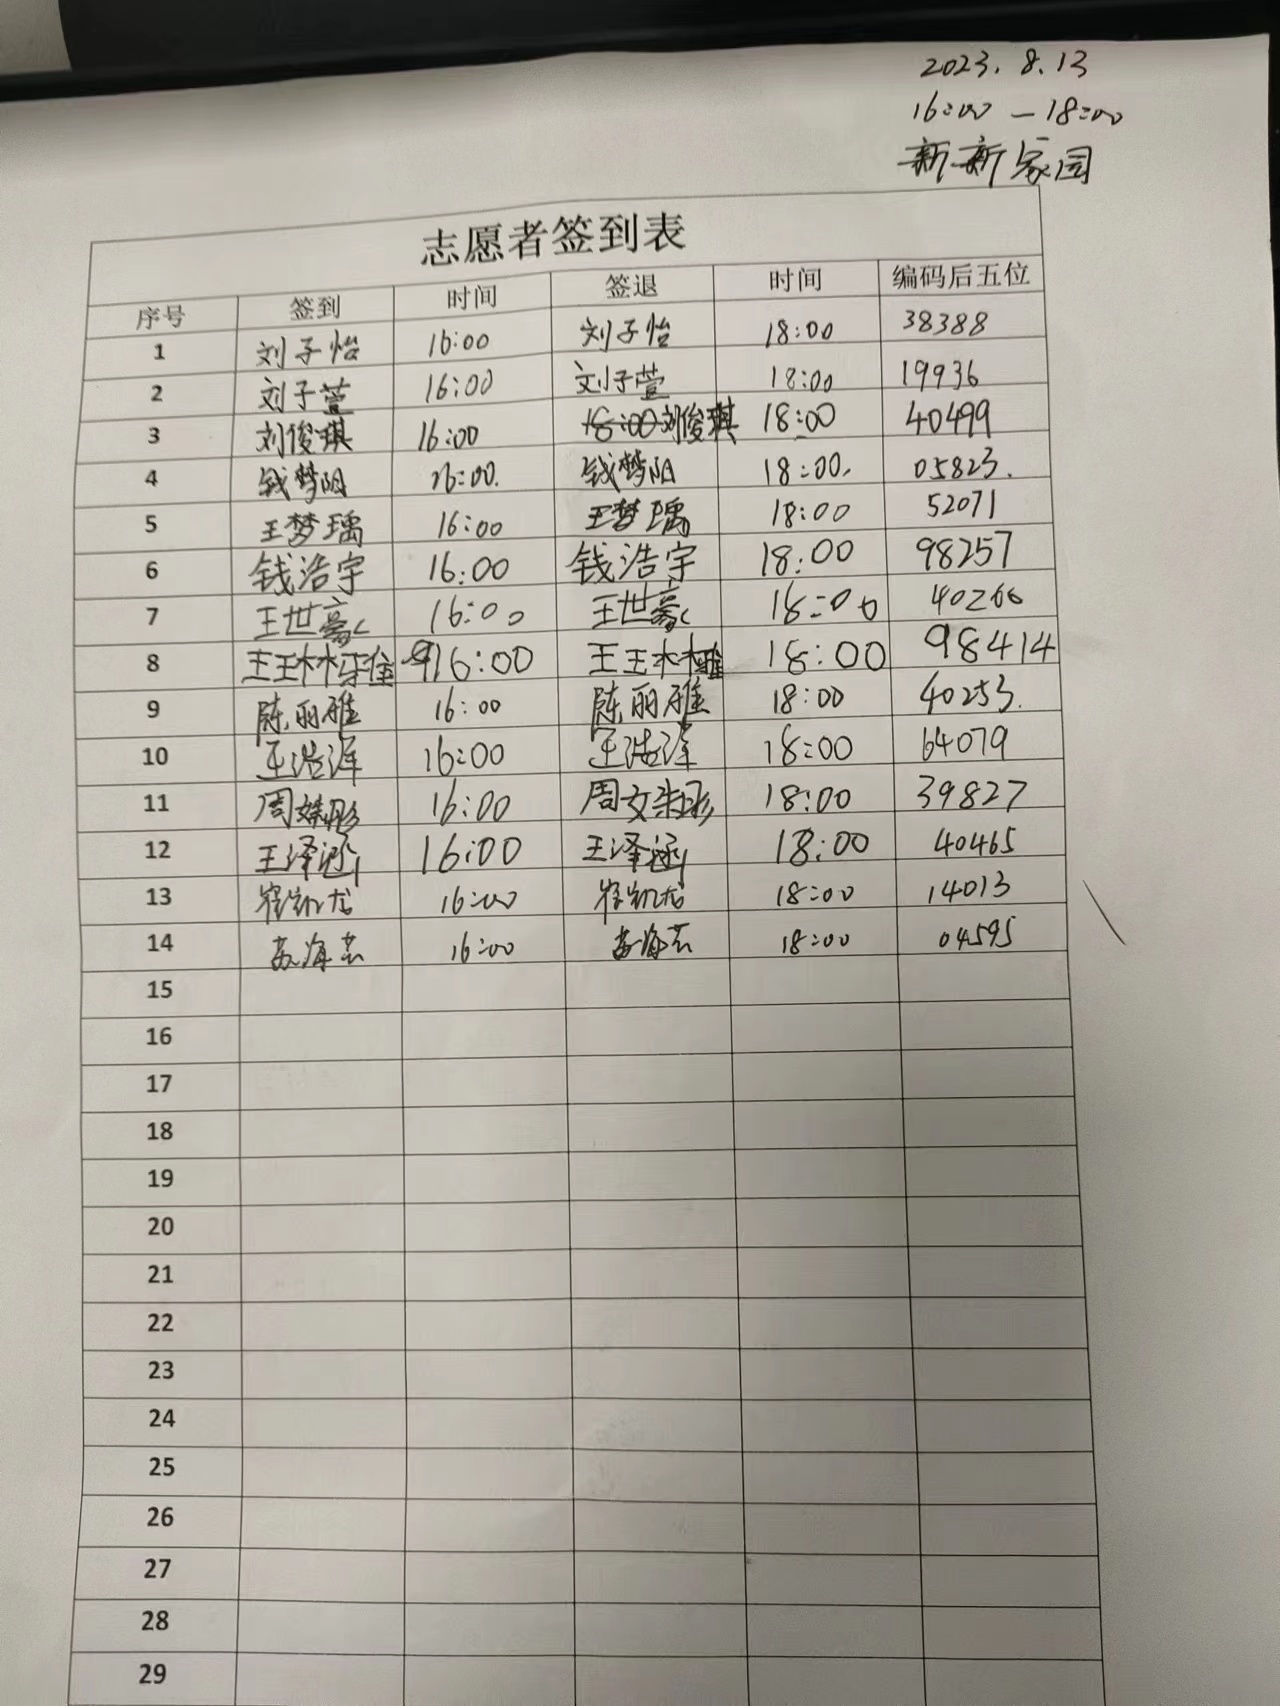 2023.8.13
16:00 — 18:00
新新家园
志愿者签到表
序号 签到 时间 签退 时间 编码后五位
1 刘子怡 16:00 刘子怡 18:00 38388
2 刘子萱 16:00 刘子萱 18:00 19936
3 刘俊琪 16:00 18:00 刘俊琪 18:00 40499
4 钱梦阳 16:00. 钱梦阳 18:00. 05823.
5 王梦瑀 16:00 王梦瑀 18:00 52071
6 钱浩宇 16:00 钱浩宇 18:00 98257
7 王世豪 16:00 王世豪 18:00 40266
8 16:00 18:00 98414
9 陈丽雅 16:00 陈丽雅 18:00 40253.
10 王浩泽 16:00 王浩泽 18:00 64079
11 周文彤 16:00 周文 18:00 39827
12 王泽涵 16:00 王泽涵 18:00 40465
13 崔凯龙 16:00 崔凯龙 18:00 14013
14 苏海芸 16:00 苏海芸 18:00 04595
15
16
17
18
19
20
21
22
23
24
25
26
27
28
29